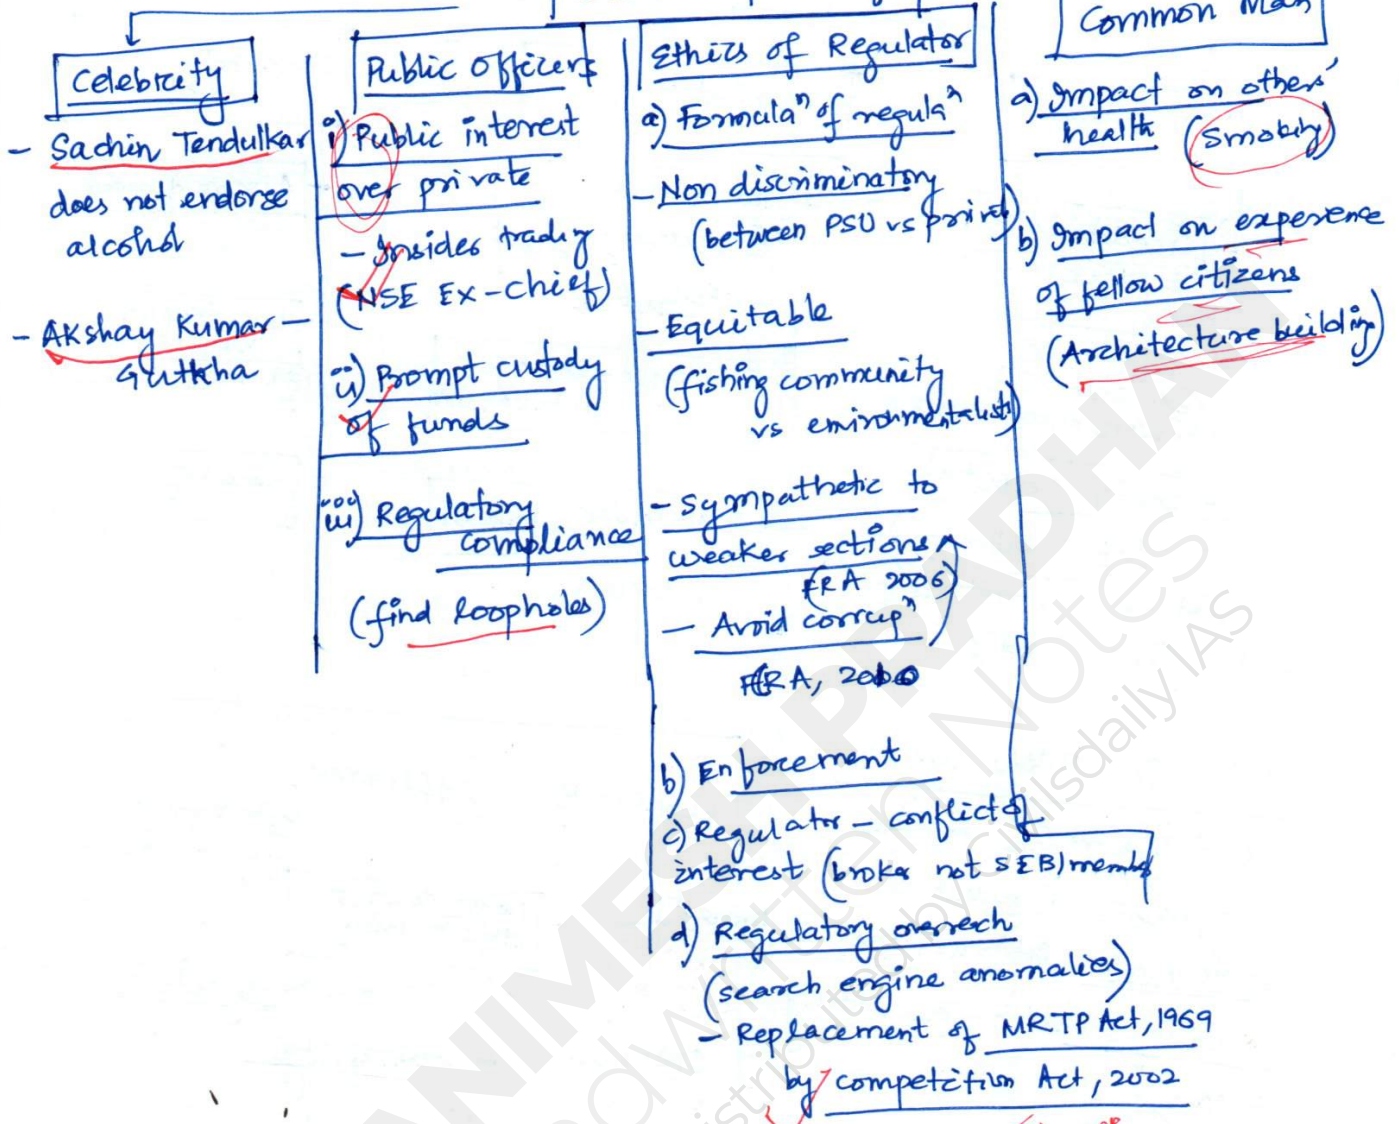 Celebrity
- Sachin Tendulkar
does not endorse
alcohol
- Akshay Kumar -
Gutkha
Public Officers
i) Public interest
over private
- Insider trading
(NSE Ex-chief)
ii) Prompt custody
of funds
iii) Regulatory
compliance
(find loopholes)
Ethics of Regulator
a) Formulaⁿ of regulaⁿ
- Non discriminatory
(between PSU vs private)
- Equitable
(fishing community
vs environmentalists)
- Sympathetic to
weaker sections
(FRA 2006)
- Avoid corrupⁿ
b) Enforcement
c) Regulator - conflict of
interest (broker not SEBI member)
d) Regulatory overreach
(search engine anomalies)
- Replacement of MRTP Act, 1969
by competition Act, 2002
Common Man
a) Impact on others'
health (Smoking)
b) Impact on experience
of fellow citizens
(Architecture building)
ANIMESH PRADHAN
Handwritten Notes
distributed by Civilsdaily IAS